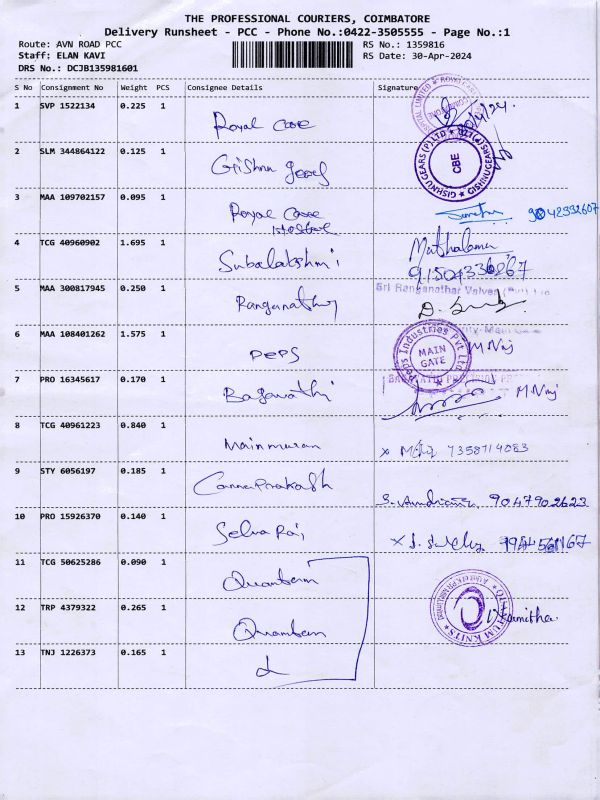 THE PROFESSIONAL COURIERS, COIMBATORE
Delivery Runsheet - PCC - Phone No.:0422-3505555 - Page No.:1
Route: AVN ROAD PCC
Staff: ELAN KAVI
DRS No.: DCJB135981601
RS No.: 1359816
RS Date: 30-Apr-2024
S No Consignment No Weight PCS Consignee Details Signature
1 SVP 1522134 0.225 1 Royal Care
2 SLM 344864122 0.125 1 Grishnu gears GISHNUGEARS (P) LTD CBE
3 MAA 109702157 0.095 1 Royal Care 9042332607
4 TCG 40960902 1.695 1 Subalakshmi
5 MAA 300817945 0.250 1 Ranganathar Sri Ranganathar Valves
6 MAA 108401262 1.575 1 PEPS Peps Industries Pvt Ltd MAIN GATE M Naj
7 PRO 16345617 0.170 1 Bagavathi M Naj
8 TCG 40961223 0.840 1 Mainmuran x 7358714083
9 STY 6056197 0.185 1 9047902623
10 PRO 15926370 0.140 1 Selva Raj
11 TCG 50625286 0.090 1 Quantum
12 TRP 4379322 0.265 1 Quantum QUANTUM KNITS
13 TNJ 1226373 0.165 1